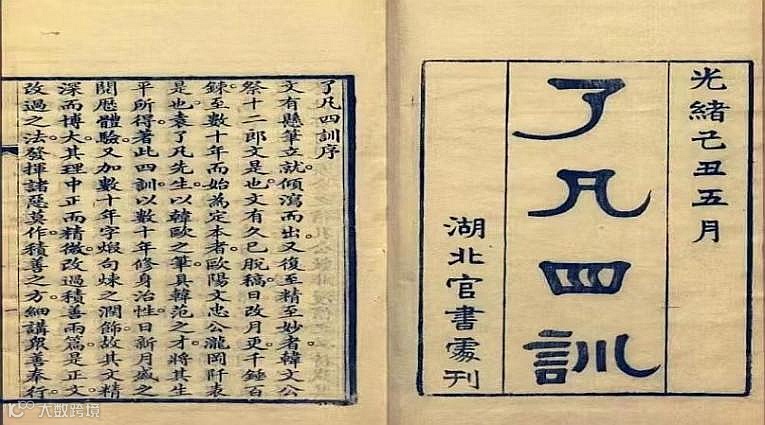 光緒己丑五月
了凡四訓
湖北官書處刊
了凡四訓序
文有懸筆立就。傾瀉而出。又復至精至妙者。韓文公
祭十二郎文是也。文有久已脫稿。日改月更。千錘百
鍊。至數十年而始為定本者。歐陽文忠公瀧岡阡表
是也。袁了凡先生以韓歐之筆。具韓范之才。將其生
平所得。著此四訓。以數十年修身治性。日新月盛之
閱歷體驗。又加數十年字煅句煉之潤飾。故其文精
深而博大。其理中正而精微。改過積善兩篇。是正文
改過之法。發揮諸惡莫作。積善之方。細講眾善奉行
大数跨境